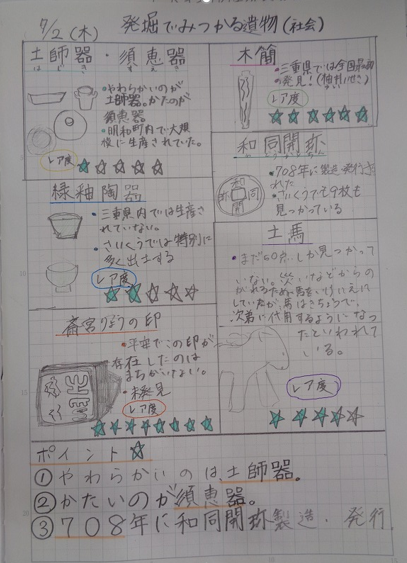 7/2(木) 発掘でみつかる遺物(社会)
土師器・須恵器
はじき すえき
・やわらかいのが
土師器。かたのが
須恵器
・明和町内で大規
模に生産されていた。
レア度
☆☆☆☆☆
木簡
・三重県では全国
の発見!
レア度
☆☆☆☆☆☆
和同開珎
和同開珎
・708年に製造・発行さ
れた
・さいくうでも9枚も
見つかっている
緑釉陶器
・三重県内では生産さ
れていない。
・さいくうでは特別に
多く出土する
レア度
☆☆☆☆☆
土馬
・まだ60点しか見つかって
いない。災いなどからの
がれるため馬をいけにえに
していたが、馬はきちょうで、
次第に代用するようになっ
たといわれて
いる。
レア度
☆☆☆☆☆
斎宮りょうの印
・平安でこの印が
存在したのは
まちがいない。
・未発見
レア度
☆☆☆☆☆☆☆
ポイント☆
①やわらかいのは、土師器。
②かたいのが須恵器。
③708年に和同開珎製造・発行